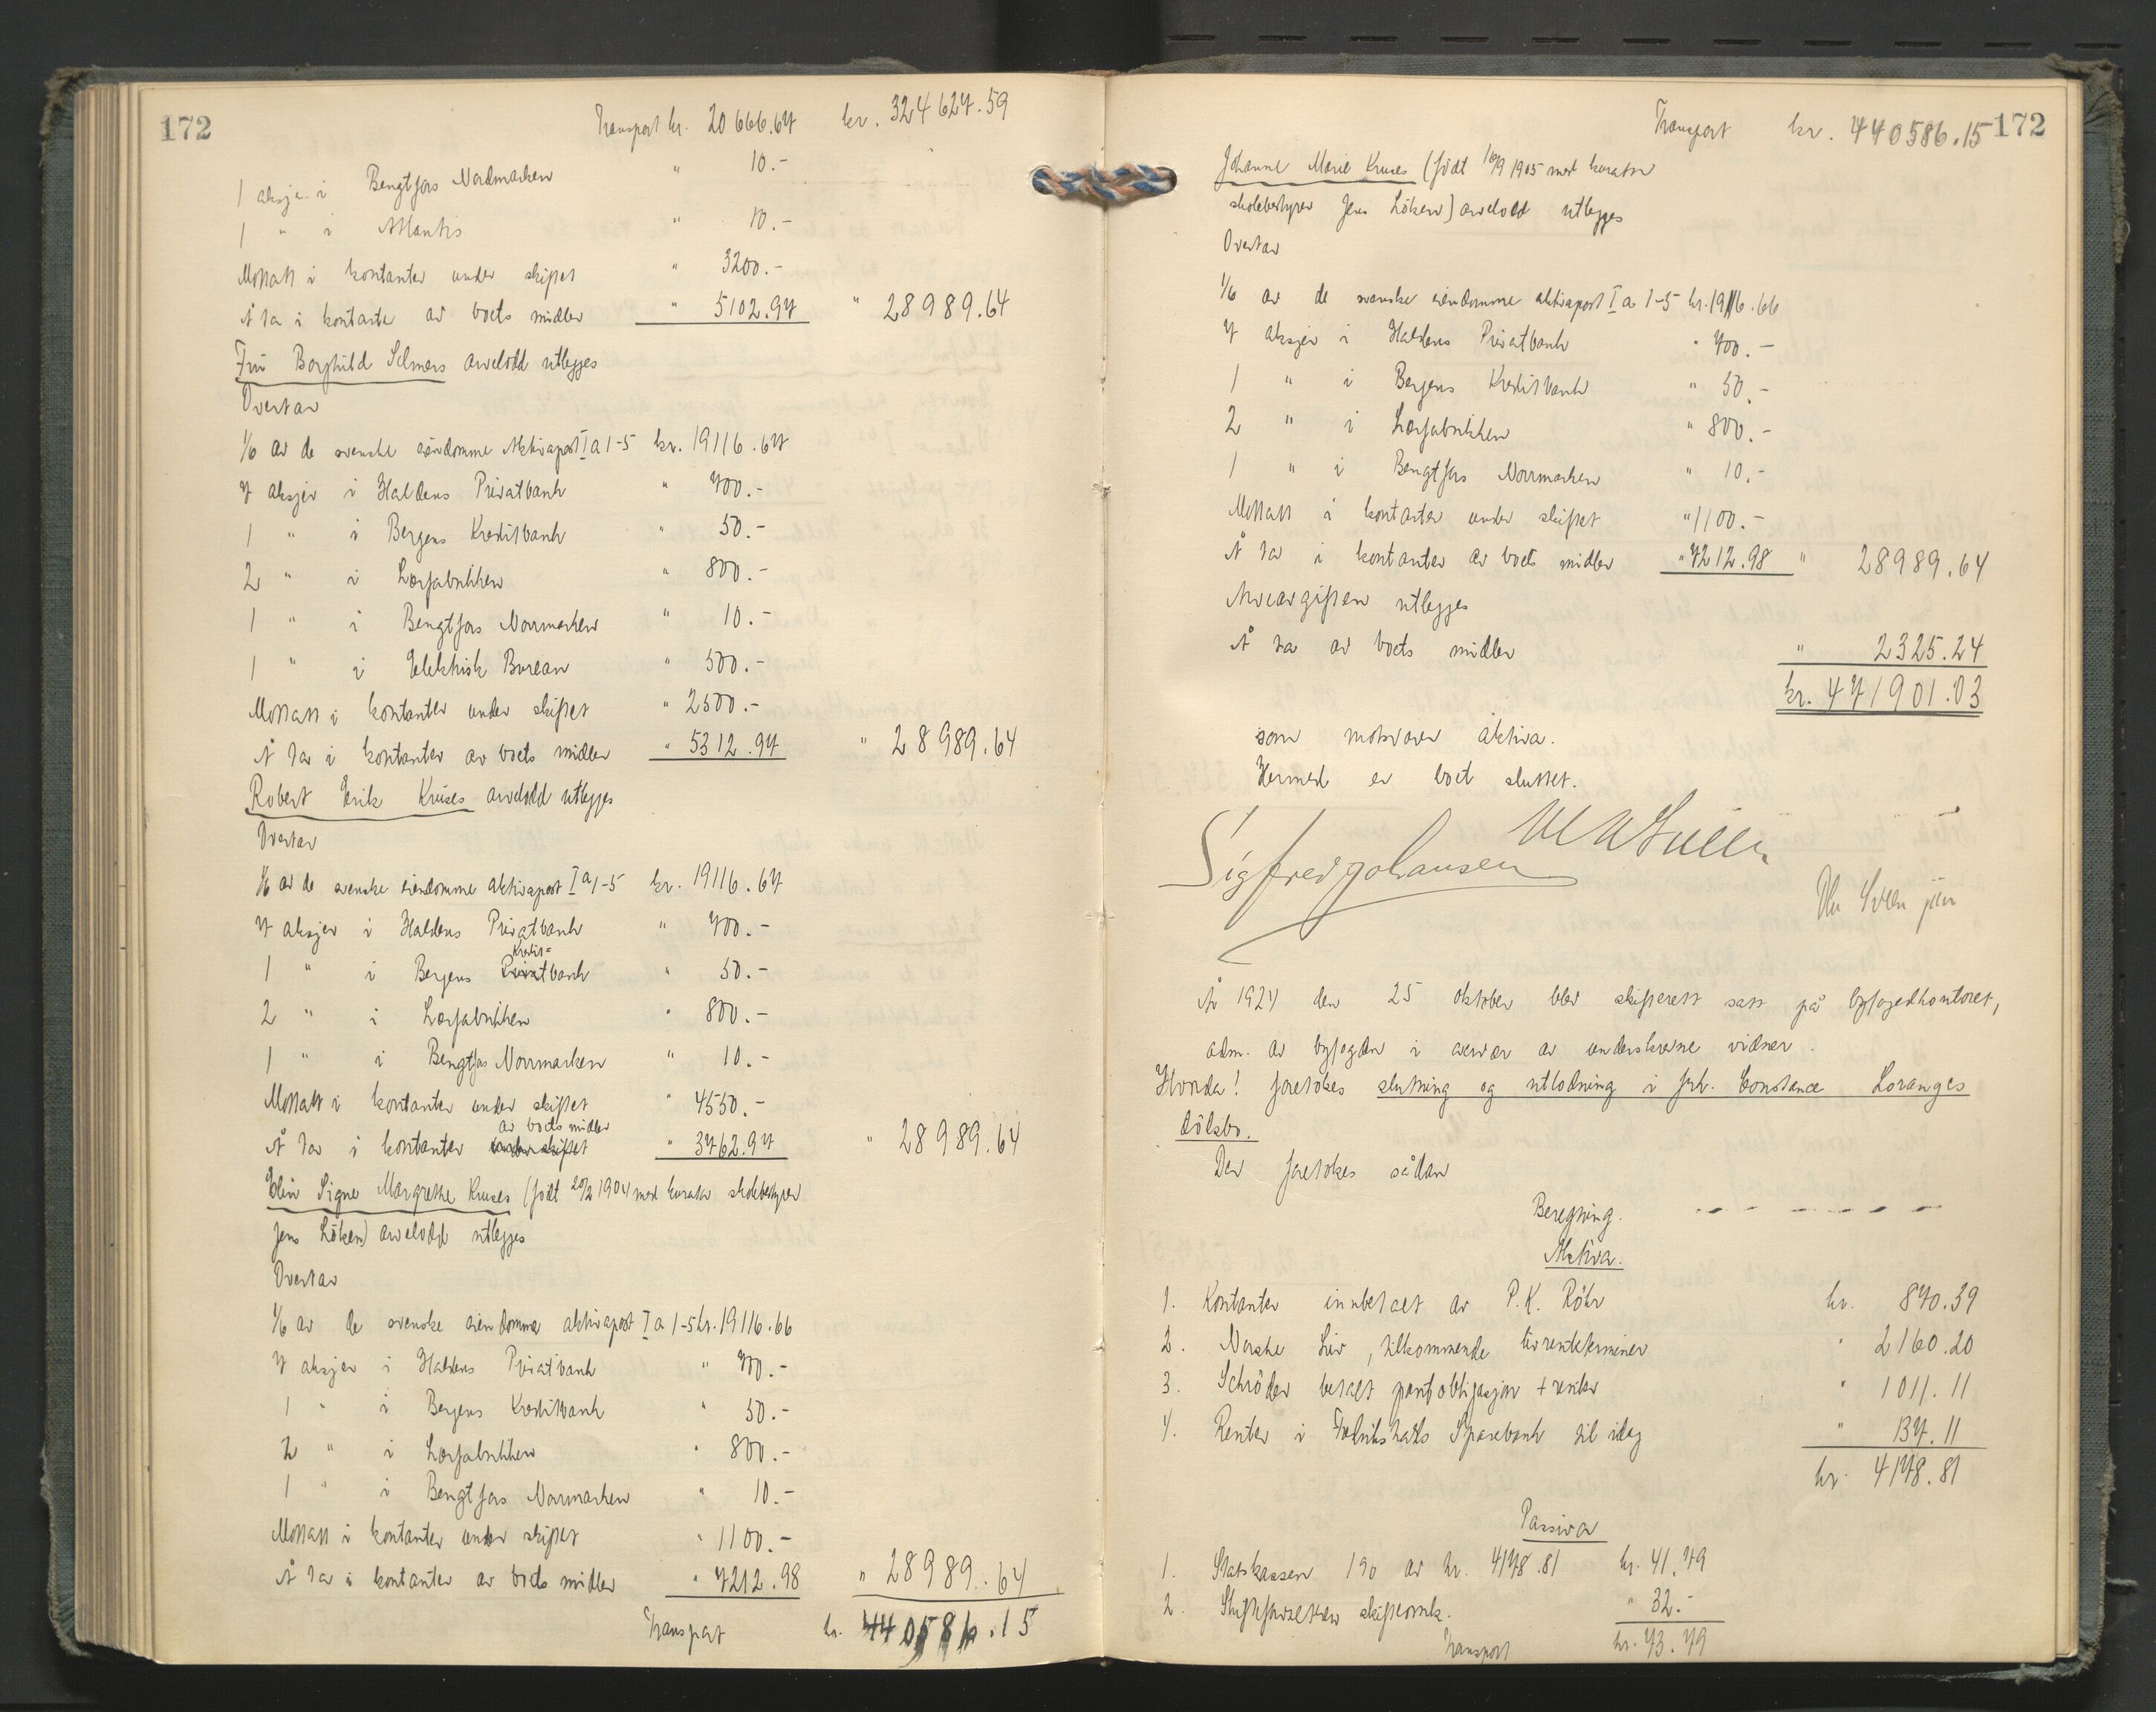 172
Transport kr. 20666.67 kr. 324627.59
1 aksje i Bengtsfors Nordmarken " 10.-
1 " i Atlantis " 10.-
Mottatt i kontanter under skiftet " 3200.-
Å ta i kontante av boets midler " 5102.97 " 28989.64
Fru Borghild Selmers arvelodd utlegges
Overtar
1/6 av de svenske eiendomme Aktivapost I a 1-5 kr. 19116.67
7 aksjer i Haldens Privatbank " 700.-
1 " i Bergens Kreditbank " 50.-
2 " i Lærfabrikken " 800.-
1 " i Bengtsfors Norrmarken " 10.-
1 " i Elektrisk Bureau " 500.-
Mottatt i kontanter under skiftet " 2500.-
Å ta i kontanter av boets midler " 5312.97 " 28989.64
Robert Erik Kruses arvelodd utlegges
Overtar
1/6 av de svenske eiendomme aktivapost I a 1-5 kr. 19116.67
7 aksjer i Haldens Privatbank " 700.-
1 " i Bergens Privatbank Kredit= " 50.-
2 " i Lærfabrikken " 800.-
1 " i Bengtsfors Norrmarken " 10.-
Mottatt i kontanter under skiftet " 4550.-
Å ta i kontanter under skiftet av boets midler " 3762.97 " 28989.64
Elin Signe Margrethe Kruses (født 20/2 1904 med kurator skolebestyrer
Jens Löken) arvelodd utlegges
Overtar
1/6 av de svenske eiendomme aktivapost I a 1-5 kr. 19116.66
7 aksjer i Haldens Privatbank " 700.-
1 " i Bergens Kreditbank " 50.-
2 " i Lærfabrikken " 800.-
1 " i Bengtsfors Norrmarken " 10.-
Mottatt i kontanter under skiftet " 1100.-
Å ta i kontanter av boets midler " 7212.98 " 28989.64
Transport kr. 440586.15
Transport kr. 440586.15 172
Johanne Marie Kruses (født 16/9 1905 med kurator
skolebestyrer Jens Löken) arvelodd utlegges
Overtar
1/6 av de svenske eiendomme aktivapost I a 1-5 kr. 19116.66
7 aksjer i Haldens Privatbank " 700.-
1 " i Bergens Kreditbank " 50.-
2 " i Lærfabrikken " 800.-
1 " i Bengtsfors Norrmarken " 10.-
Mottatt i kontanter under skiftet " 1100.-
Å ta i kontanter av boets midler " 7212.98 " 28989.64
Arveavgiften utlegges
Å ta av boets midler " 2325.24
kr. 471901.03
som motsvarer aktiva.
Hermed er boet sluttet.
Sigfred Johansen
År 1924 den 25 oktober blev skifterett satt på byfogedkontoret,
adm. av byfogden i nærvær av underskrevne vidner.
Hvorda! foretokes slutning og utlodning i frk. Constance Loranges
dödsbo.
Der foretokes sådan
Beregning.
Aktiva.
1. Kontanter innbetalt av P.K. Röhr kr. 870.39
2. Norske Liv, tilkommende livrenteterminer " 2160.20
3. Schröder betalt pantobligasjon + renter " 1011.11
4. Renter i Fredrikstads Sparebank til idag " 137.11
kr. 4178.81
Passiva
1. Statskassen 1% av kr. 4178.81 kr. 41.79
2. Skifteforvalteren skifteomk. " 32.-
Transport kr. 73.79